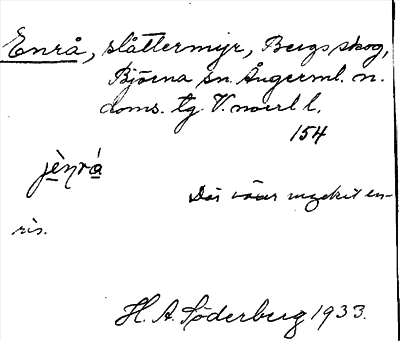 Enrå, slåttermyr, Bergs skog,
Björna sn. Ångerml. n.
doms. tg. V. norrl l.
154
jènrá
Där växer mycket en-
ris.
H. A. Söderberg 1933.